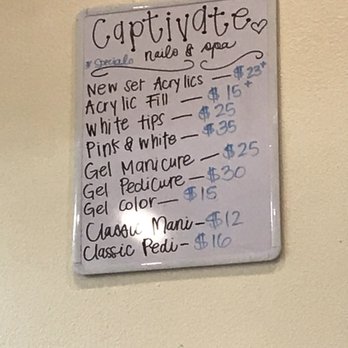 Captivate
* Specials nails & spa
New Set Acrylics — $23+
Acrylic Fill — $15+
White tips — $25
Pink & white — $35
Gel Manicure — $25
Gel Pedicure — $30
Gel color — $15
Classic Mani — $12
Classic Pedi - $16